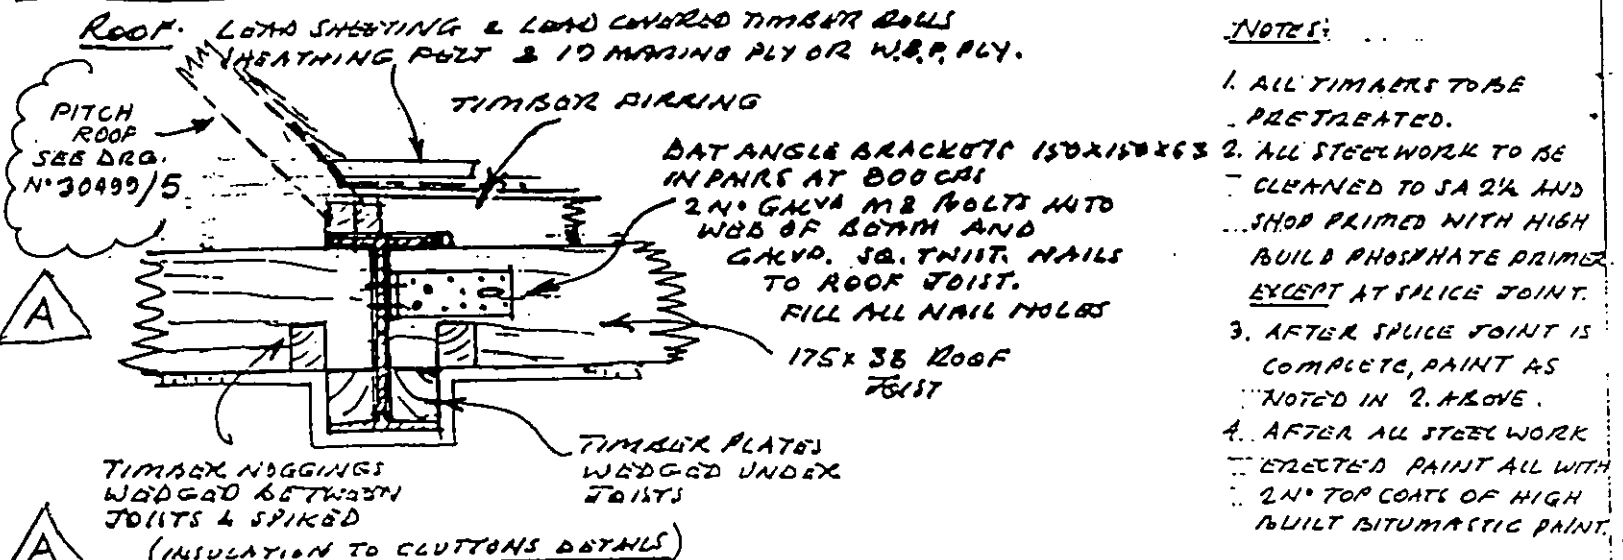 ROOF. LEAD SHEETING & LEAD COVERED TIMBER ROLLS
SHEATHING FELT & 19 MARINE PLY OR W.B.P. PLY.
TIMBER FIRRING
PITCH
ROOF
SEE DRG.
Nº 30499/5
BAT ANGLE BRACKETS 150X150X63
IN PAIRS AT 800 CRS
2 Nº GALVD M8 BOLTS INTO
WEB OF BEAM AND
GALVD. SQ. TWIST. NAILS
TO ROOF JOIST.
FILL ALL NAIL HOLES
A
175 x 38 ROOF
JOIST
TIMBER PLATES
WEDGED UNDER
JOISTS
TIMBER NOGGINGS
WEDGED BETWEEN
JOISTS & SPIKED
A
(INSULATION TO CLUTTONS DETAILS)
NOTES:
1. ALL TIMBERS TO BE
PRETREATED.
2. ALL STEELWORK TO BE
CLEANED TO SA 2½ AND
SHOP PRIMED WITH HIGH
BUILD PHOSPHATE PRIMER
EXCEPT AT SPLICE JOINT.
3. AFTER SPLICE JOINT IS
COMPLETE, PAINT AS
NOTED IN 2. ABOVE.
4. AFTER ALL STEEL WORK
ERECTED PAINT ALL WITH
2 Nº TOP COATS OF HIGH
BUILT BITUMASTIC PAINT.